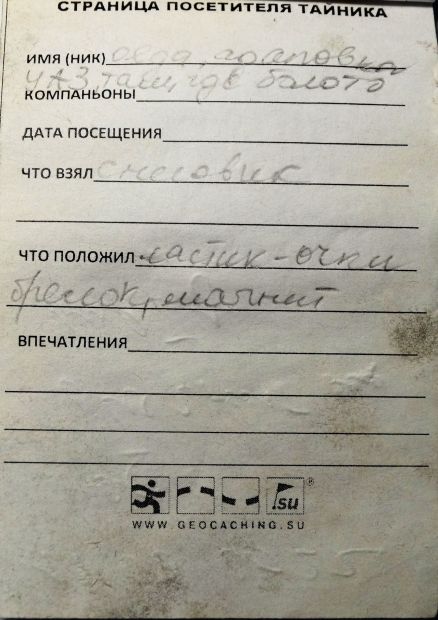 СТРАНИЦА ПОСЕТИТЕЛЯ ТАЙНИКА
ИМЯ (НИК)
УАЗ там, где болото
КОМПАНЬОНЫ
ДАТА ПОСЕЩЕНИЯ
ЧТО ВЗЯЛ снеговик
ЧТО ПОЛОЖИЛ ластик-очки
брелок, магнит
ВПЕЧАТЛЕНИЯ
.su ®
WWW.GEOCACHING.SU